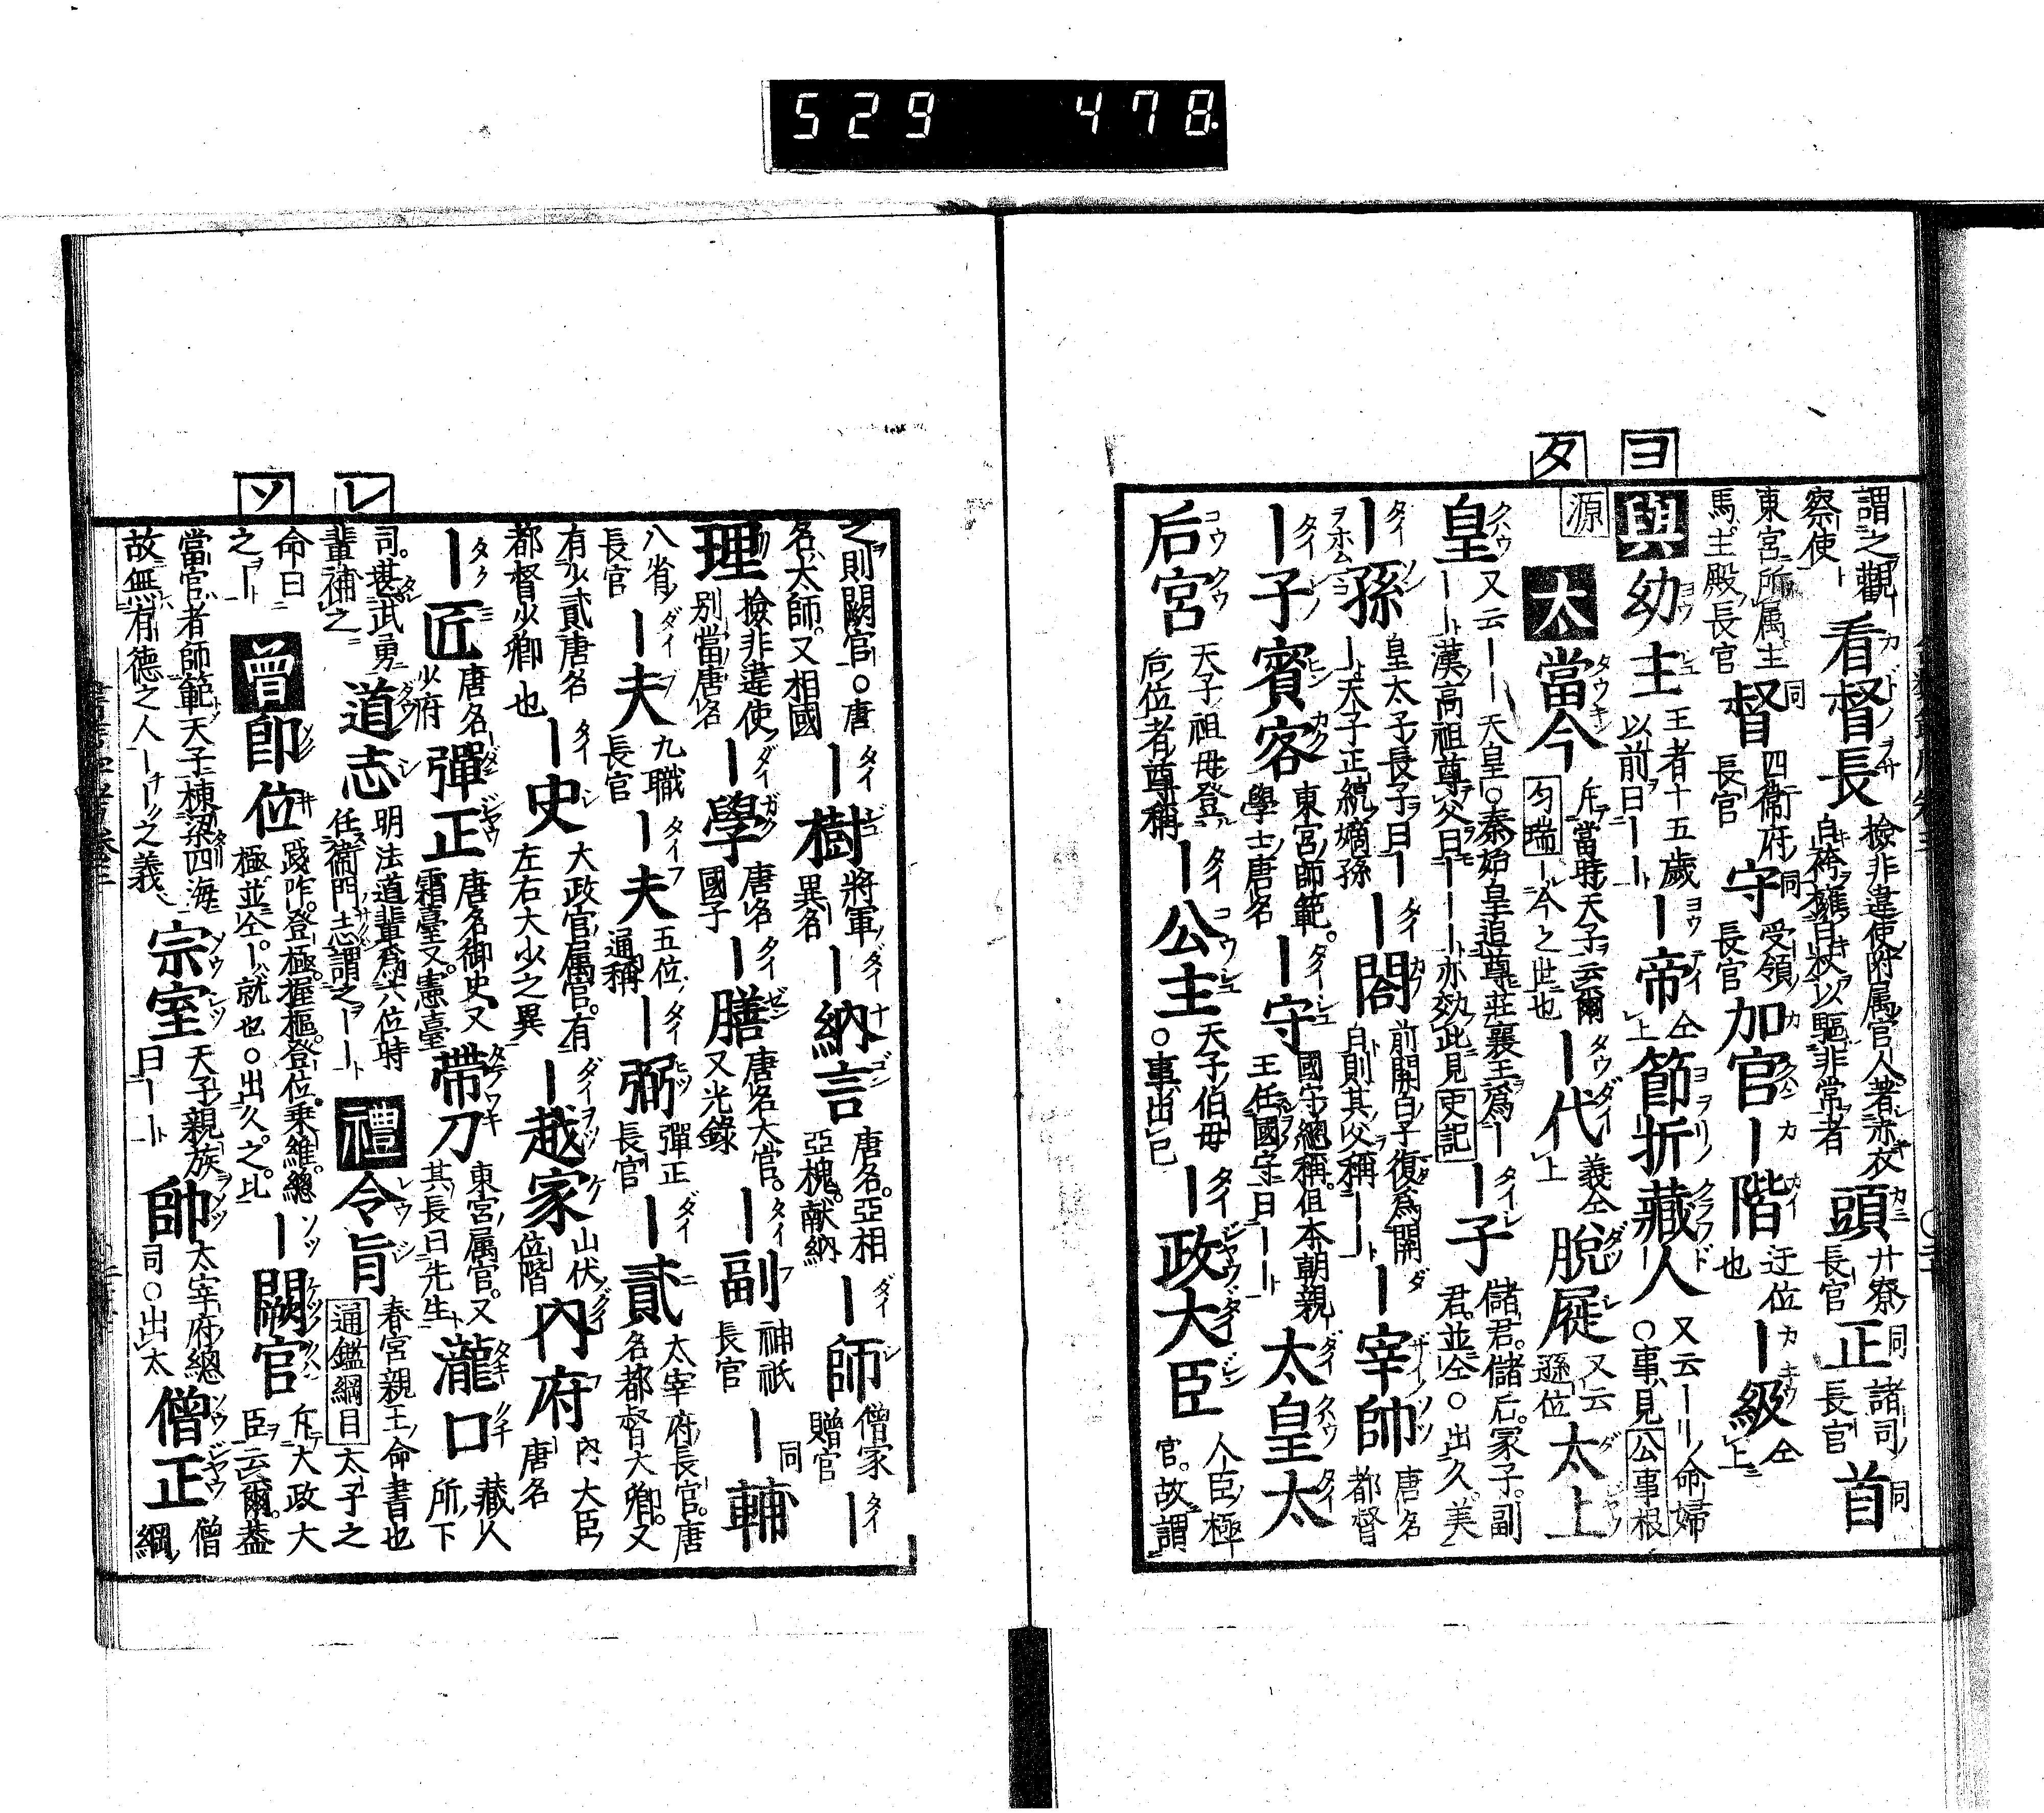 529 478
ヨ
タ
謂之觀
察使 看督長 檢非違使附属官人著赤衣
白袴 白杖以驅非常者 頭 廿寮長官 正 諸司長官 首 同
東宮所属主
馬主殿長官 督 四衛府長官 守 受領長官 加官 ー階 迁位也 ー級 仝上
與 幼主 王者十五歲
以前曰ーー ー帝 仝上 節折藏人 又云ーー命婦
○事見公事根
源 太 當今 斥當時天子云爾
ー今之世也 ー代 義仝上 脱屣 又云遜位 太上
皇 又云ーー天皇○秦始皇追尊莊襄王爲ー
ーー漢高祖尊父曰ーーー亦效此見史記 ー子 儲君。儲后。冢子。副
君。並仝○出久美
ー孫 皇太子長子曰ー
ー天子正統嫡孫 ー閤 前關白子復爲關
白則其父稱ーー ー宰帥 唐名都督
ー子賓客 東宮師範。
學士唐名 ー守 國守總稱。但本朝親
王任國守曰ーー 太皇太
后宮 天子祖母登
后位者尊稱 ー公主 天子伯母
○事出已 ー政大臣 人臣極
官。故謂
レ
ソ
之則闕官○唐
名太師。又相國 ー樹 將軍異名 ー納言 唐名。亞相
亞槐。献納 ー師 僧家贈官 ー
理 撿非違使
別當唐名 ー學 唐名國子 ー膳 唐名大官。
又光錄 ー副 神祇長官 ー輔 同
八省
長官 ー夫 九職長官 ー夫 五位通稱 ー弼 彈正長官 ー貳 太宰府長官。唐
名都督大卿。又
有少貳唐名
都督少卿也 ー史 大政官属官。有
左右大少之異 ー越家 山伏位階 內府 內大臣唐名
ー匠 唐名少府 彈正 唐名御史又
霜臺又。憲臺 帶刀 東宮属官。又
其長曰先生 瀧口 藏人所下
司。甚武勇
輩補之 道志 明法道輩爲六位時
任衛門志謂之ーー 禮 令旨 春宮親王命書也
通鑑綱目太子之
命曰
之ー 曾 卽位 踐阼。登極。握樞。登位。乗維。總
極並仝。ー就也○出久。之。比 ー闕官 斥大政大
臣云爾。蓋
當官者師範天子棟梁四海
故無有德之人ーー之義 宗室 天子親族
曰ーー 帥 太宰府總
司○出太 僧正 僧綱